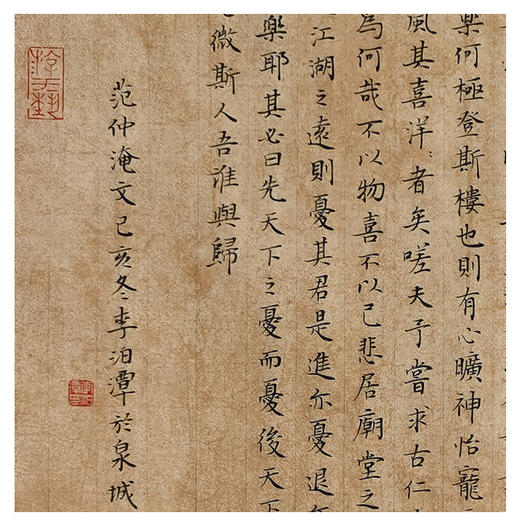 樂何極登斯樓也則有心曠神怡寵
風其喜洋〻者矣嗟夫予嘗求古仁
為何哉不以物喜不以己悲居廟堂之
江湖之遠則憂其君是進亦憂退
樂耶其必曰先天下之憂而憂後天下
微斯人吾誰與歸
范仲淹文己亥冬李泊潭於泉城